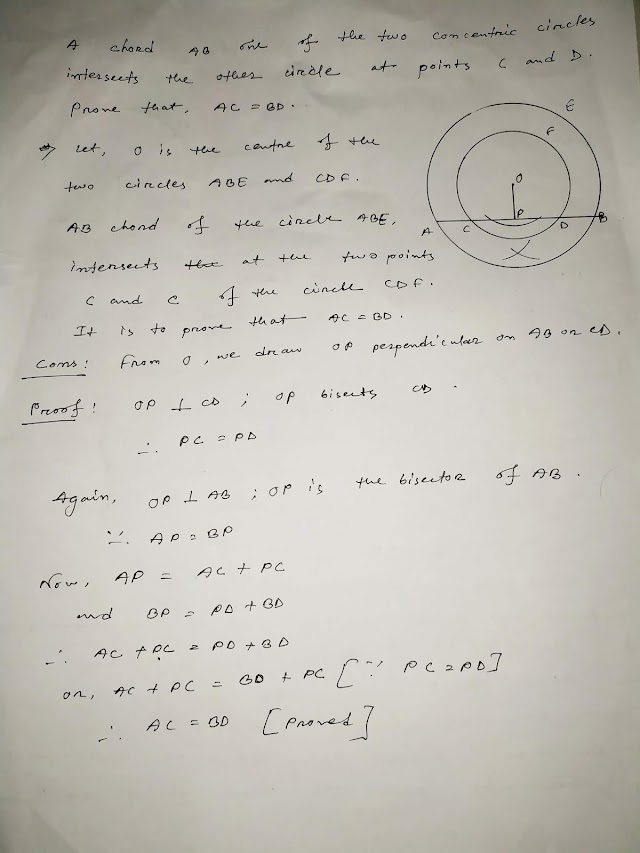 A chord AB one of the two concentric circles
intersects the other circle at points C and D.
Prove that, AC = BD.
⇒ Let, O is the centre of the
two circles ABE and CDF.
AB chord of the circle ABE,
intersects the at the two points
C and C of the circle CDF.
It is to prove that AC = BD.
Cons: From O, we draw OP perpendicular on AB or CD.
Proof: OP ⊥ CD ; OP bisects CD.
∴ PC = PD
Again, OP ⊥ AB ; OP is the bisector of AB.
∵ AP = BP
Now, AP = AC + PC
and BP = PD + BD
∴ AC + PC = PD + BD
or, AC + PC = BD + PC [∵ PC = PD]
∴ AC = BD [Proved]
E
F
O
P
A C D B